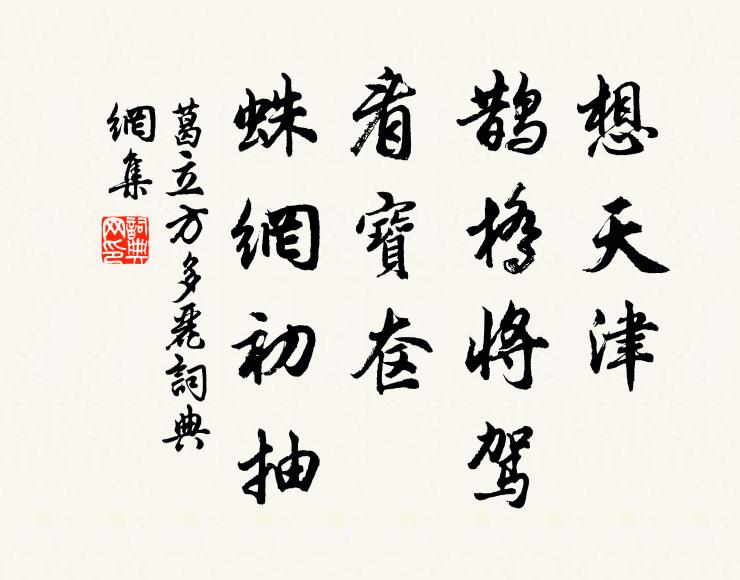 想天津
鹊橋将驾
看寶奁
蛛網初抽
葛立方多麗詞典
網集
詞典
网印